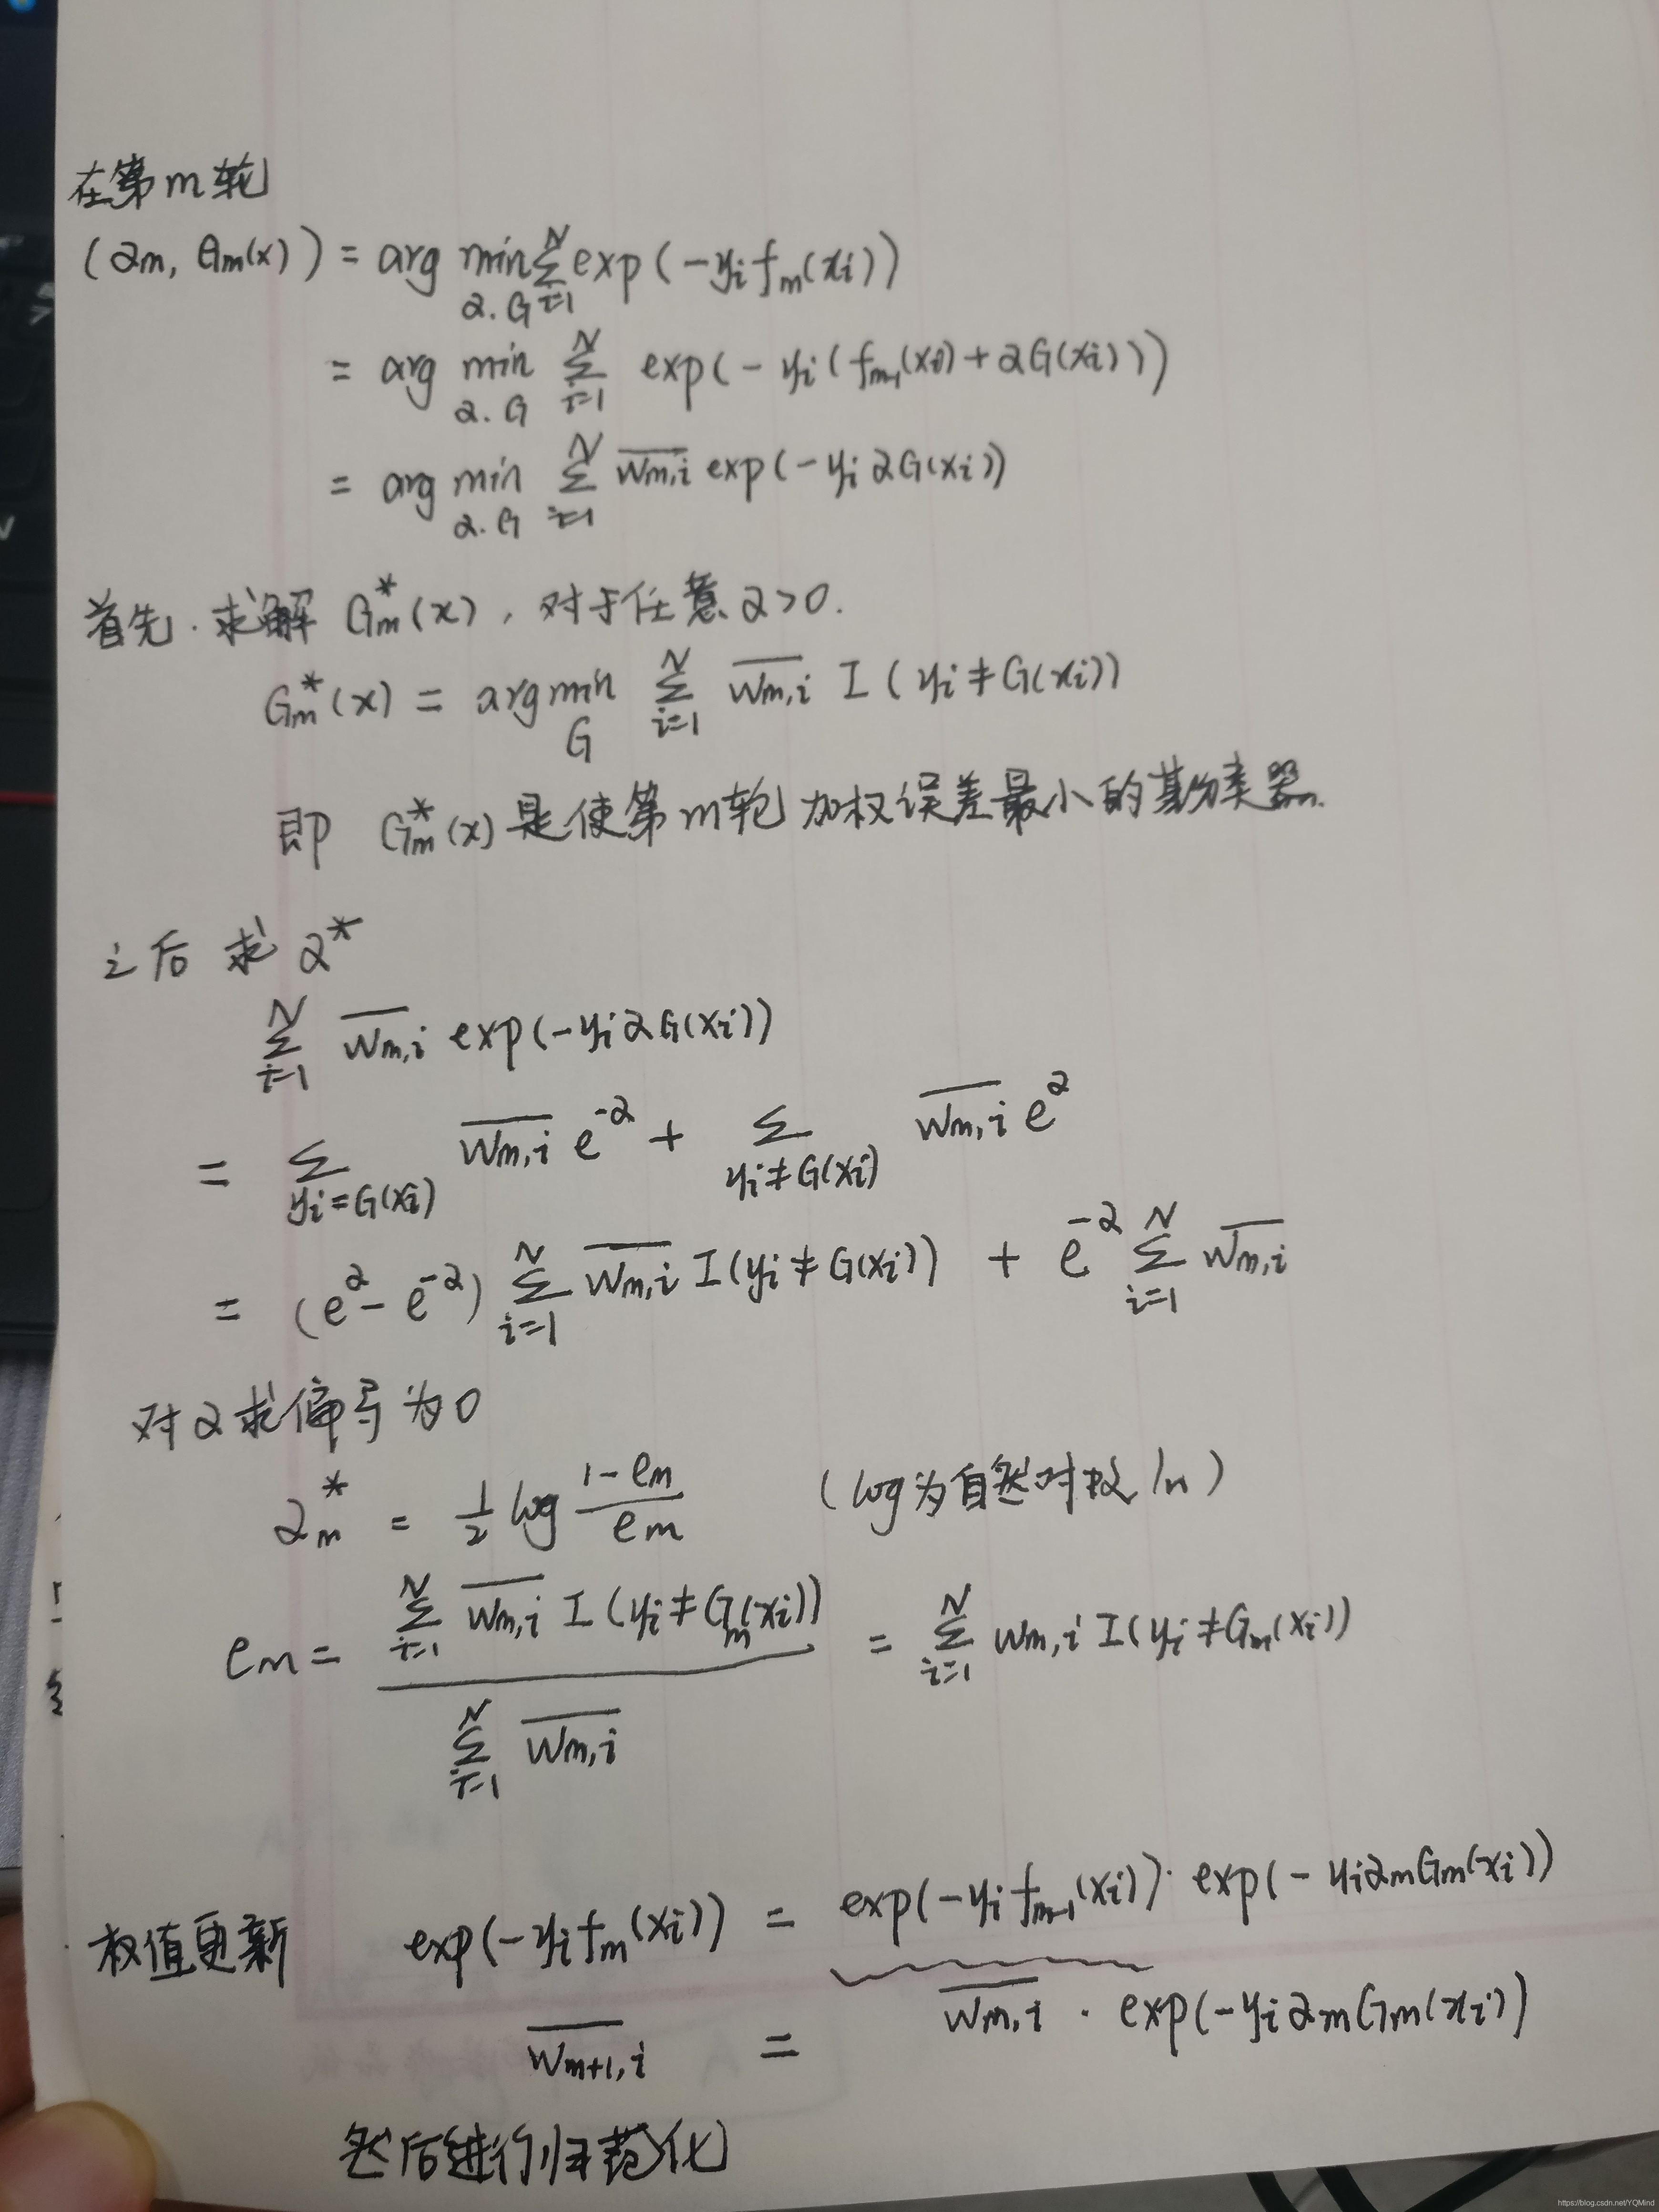 在第m轮
(αm, Gm(x)) = arg min_{α.G} Σ_{i=1}^{N} exp(-yi fm(xi))
= arg min_{α.G} Σ_{i=1}^{N} exp(-yi(fm-1(xi)+αG(xi)))
= arg min_{α.G} Σ_{i=1}^{N} w̅m,i exp(-yi αG(xi))
首先.求解 Gm*(x), 对于任意α>0.
Gm*(x) = arg min_{G} Σ_{i=1}^{N} w̅m,i I(yi≠G(xi))
即 Gm*(x)是使第m轮加权误差最小的基分类器.
之后求 α*
Σ_{i=1}^{N} w̅m,i exp(-yi αG(xi))
= Σ_{yi=G(xi)} w̅m,i e^{-α} + Σ_{yi≠G(xi)} w̅m,i e^{α}
= (e^{α} - e^{-α}) Σ_{i=1}^{N} w̅m,i I(yi≠G(xi)) + e^{-α} Σ_{i=1}^{N} w̅m,i
对α求偏导为0
αm* = 1/2 log (1-em)/em (log为自然对数ln)
em = Σ_{i=1}^{N} w̅m,i I(yi≠Gm(xi)) / Σ_{i=1}^{N} w̅m,i = Σ_{i=1}^{N} wm,i I(yi≠Gm(xi))
权值更新 exp(-yi fm(xi)) = exp(-yi fm-1(xi))·exp(-yi αm Gm(xi))
w̅m+1,i = w̅m,i · exp(-yi αm Gm(xi))
然后进行归范化
https://blog.csdn.net/YQMind